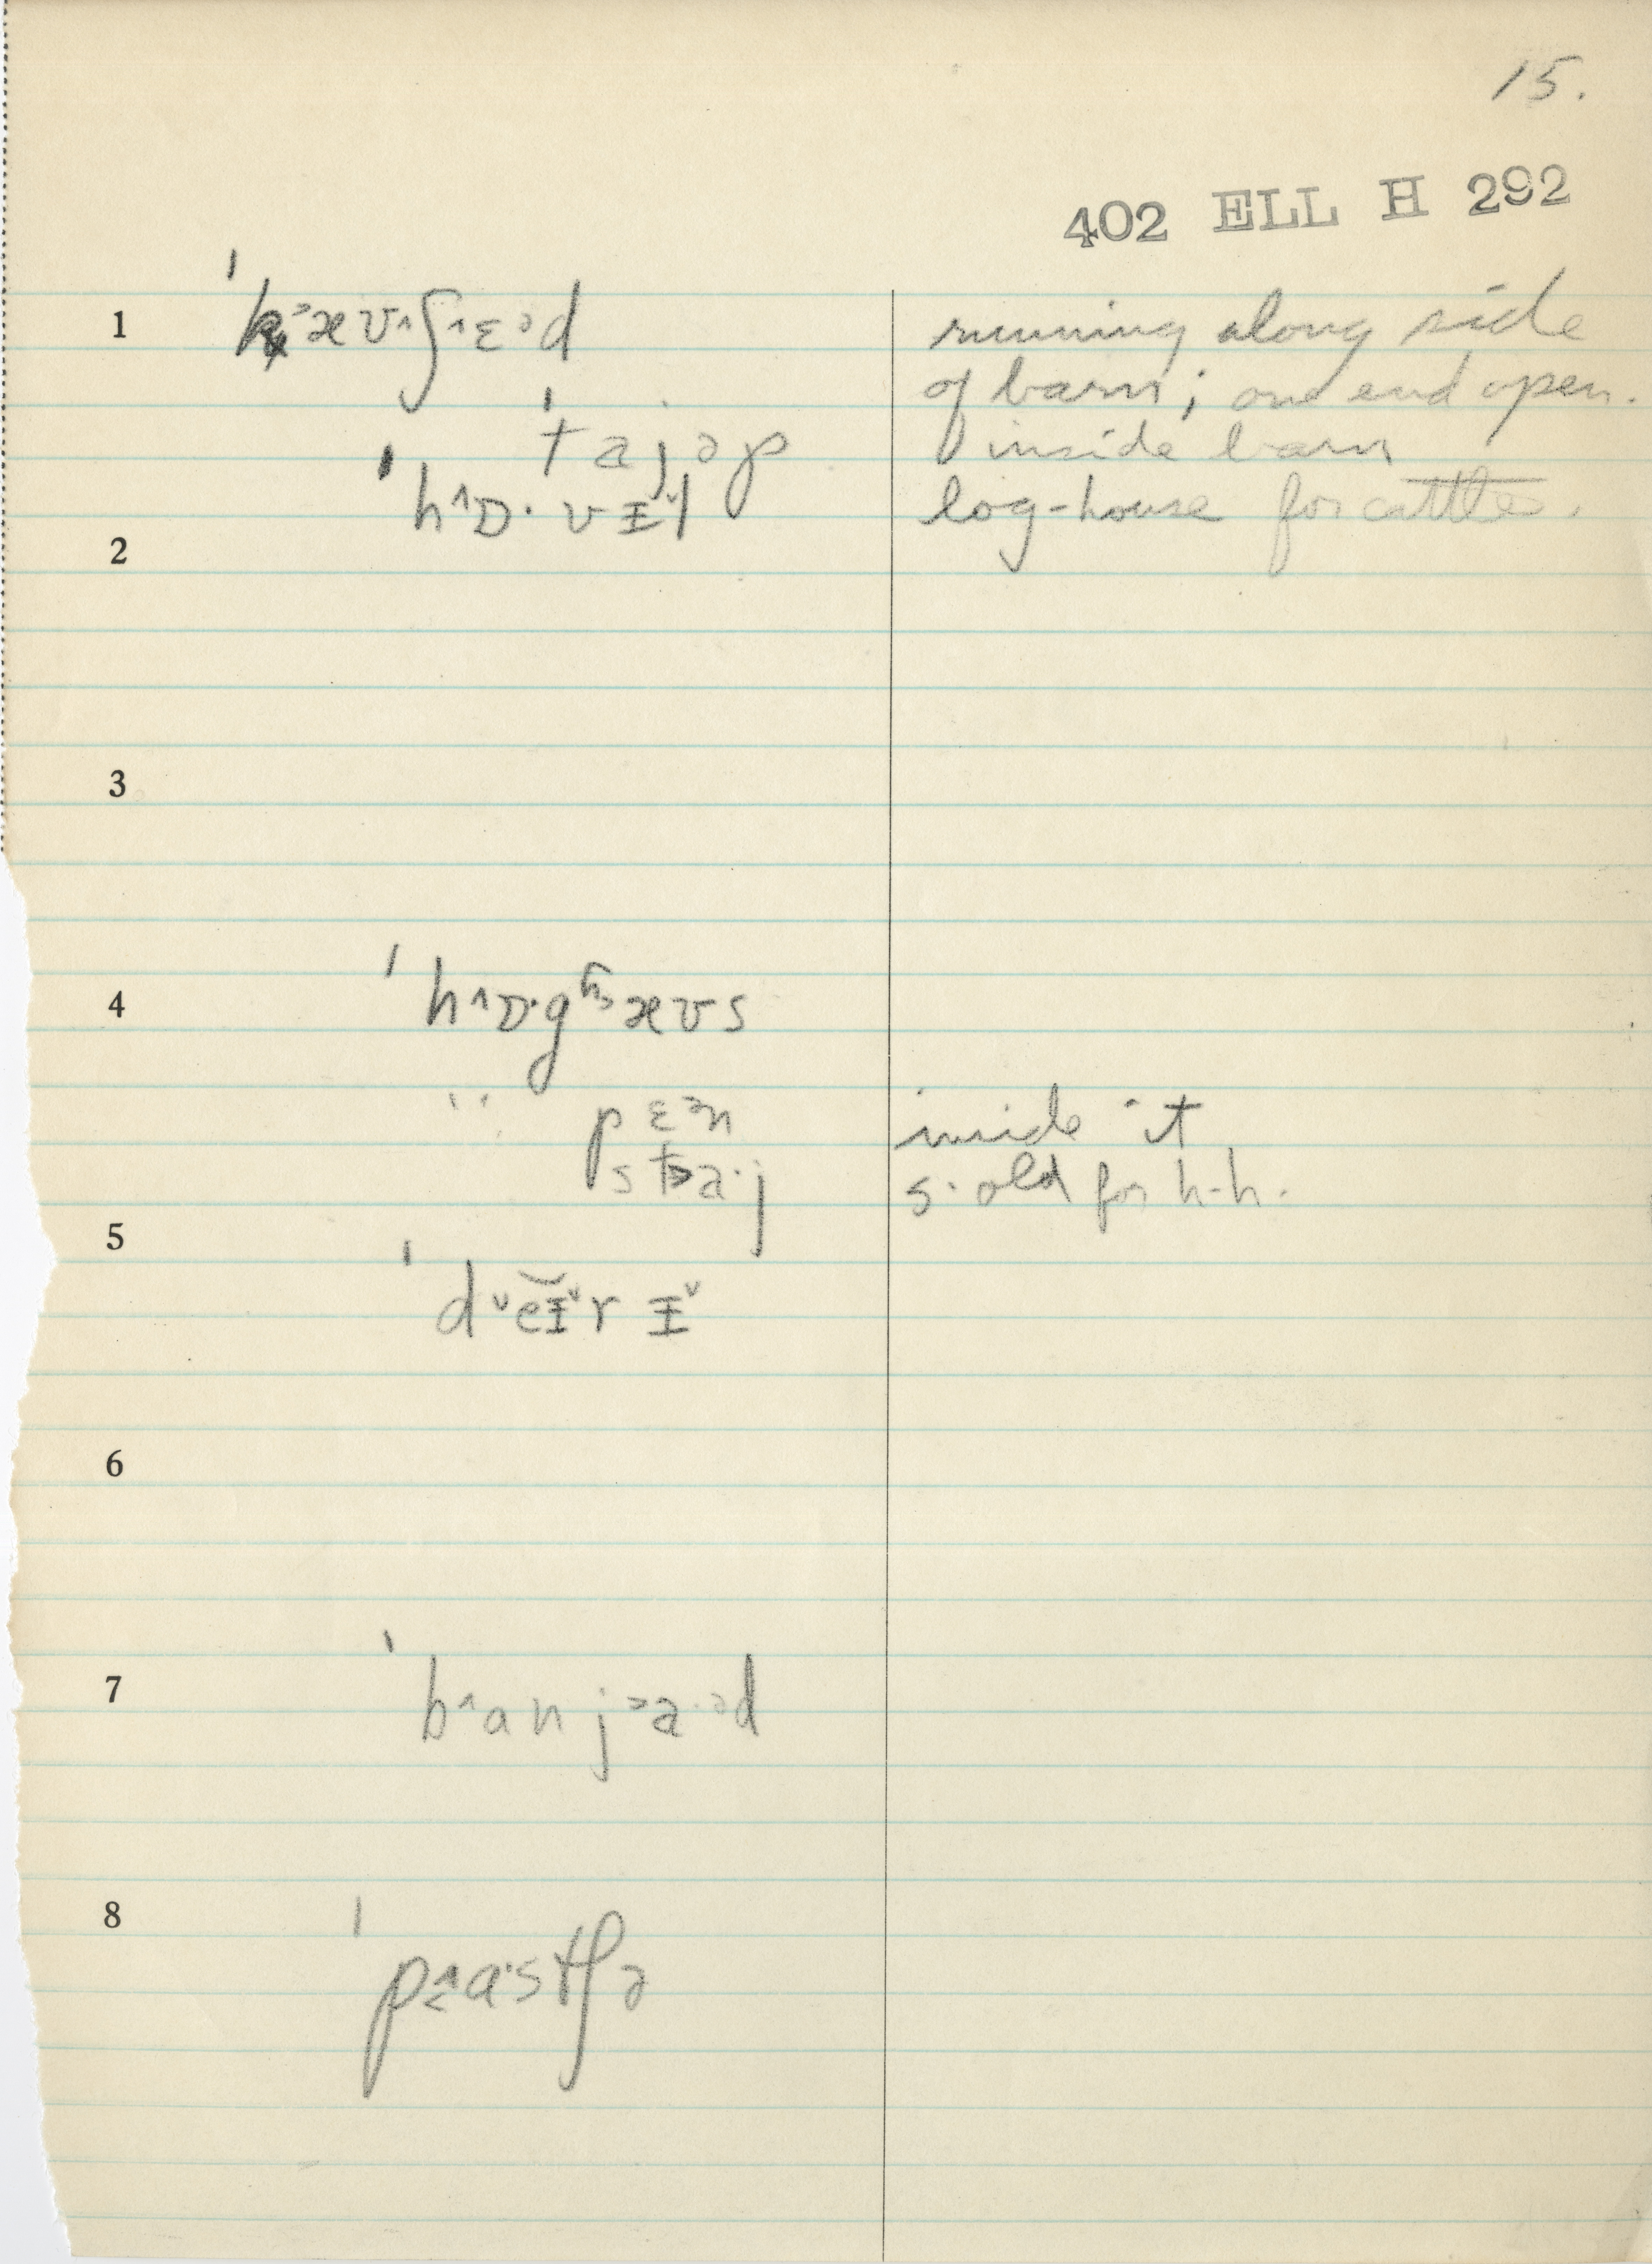 15.
402 ELL H 292
1 ˈk˃æʊ˄ʃ˄ɛ˃d running along side
of barn; one end open.
ˈtajəp inside barn
ˈh˄ɒ·vɪ̵˅l log-house for cattle.
2
3
4 ˈh˄ɒ·gʱ˃æʊs
" pɛən inside it
st˃a·j s. old for h-h.
5 ˈd˅eɪ̵˅rɪ̵˅
6
7 ˈb˄anj˃a·əd
8 ˈp˂˄a·stʃə